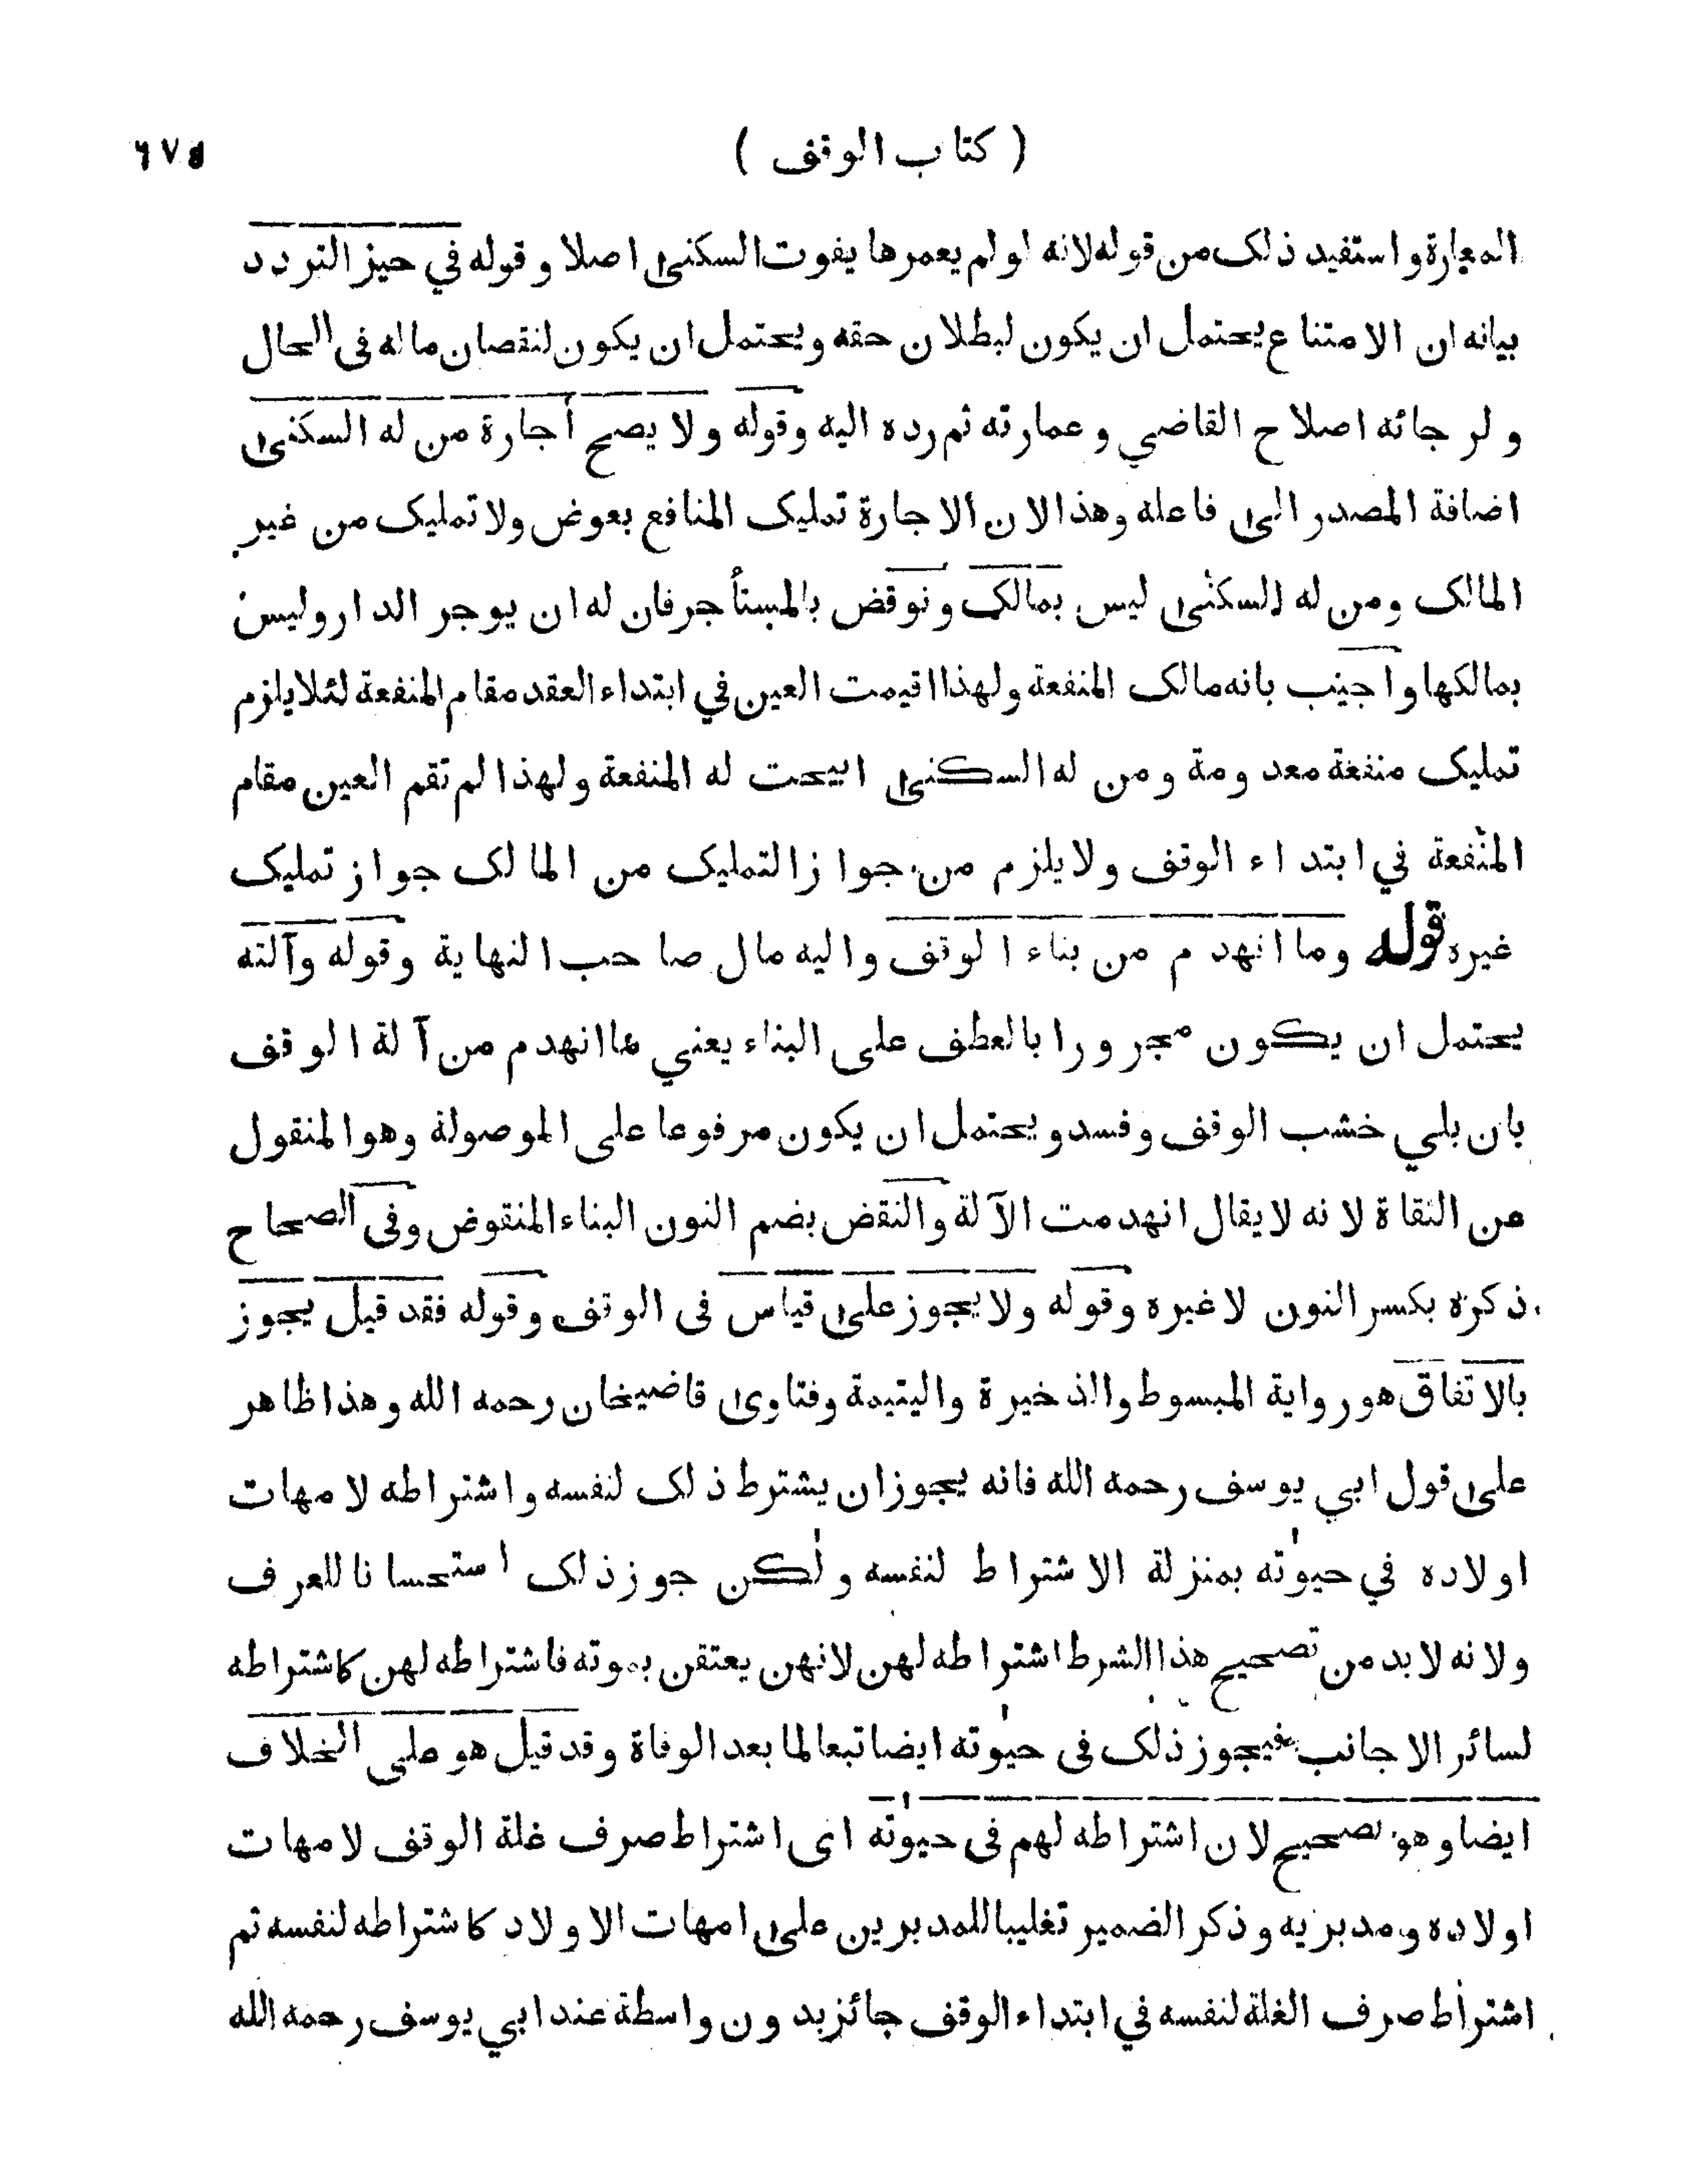 ( كتاب الوقف ) ٦٧٥
المعارة واستفيد ذلک من قوله لانه لو لم يعمرها يفوت السكنى اصلا وقوله في حيز التردد
بيانه ان الامتناع يحتمل ان يكون لبطلان حقه ويحتمل ان يكون لنقصان ماله فى الحال
ولرجائه اصلاح القاضي وعمارته ثم رده اليه وقوله ولا يصح أجارة من له السكنى
اضافة المصدر الى فاعله وهذا لان الاجارة تمليک المنافع بعوض ولا تمليک من غير
المالک ومن له السكنى ليس بمالک ونوقض بالمستأجر فان له ان يوجر الدار وليس
بمالكها واجيب بانه مالک المنفعة ولهذا اقيمت العين في ابتداء العقد مقام المنفعة لئلا يلزم
تمليک منفعة معدومة ومن له السكنى ابيحت له المنفعة ولهذا لم تقم العين مقام
المنفعة في ابتداء الوقف ولا يلزم من جواز التمليک من المالک جواز تمليک
غيره قوله وما انهدم من بناء الوقف واليه مال صاحب النهاية وقوله وآلته
يحتمل ان يكون مجرورا بالعطف على البناء يعني ما انهدم من آلة الوقف
بان بلي خشب الوقف وفسد ويحتمل ان يكون مرفوعا على الموصولة وهو المنقول
عن الثقاة لانه لا يقال انهدمت الآلة والنقض بضم النون البناء المنقوض وفى الصحاح
ذكره بكسر النون لا غيره وقوله ولا يجوز على قياس فى الوقف وقوله فقد قيل يجوز
بالاتفاق هو رواية المبسوط والذخيرة واليتيمة وفتاوى قاضيخان رحمه الله وهذا ظاهر
على قول ابي يوسف رحمه الله فانه يجوز ان يشترط ذلک لنفسه واشتراطه لامهات
اولاده في حيوٰته بمنزلة الاشتراط لنفسه ولٰكن جوز ذلک استحسانا للعرف
ولانه لا بد من تصحيح هذا الشرط اشتراطه لهن لانهن يعتقن بموته فاشتراطه لهن كاشتراطه
لسائر الاجانب فيجوز ذلک فى حيوٰته ايضا تبعا لما بعد الوفاة وقد قيل هو على الخلاف
ايضا وهو صحيح لان اشتراطه لهم فى حيوٰته اى اشتراط صرف غلة الوقف لامهات
اولاده ومدبريه وذكر الضمير تغليبا للمدبرين على امهات الاولاد كاشتراطه لنفسه ثم
اشتراط صرف الغلة لنفسه في ابتداء الوقف جائز بدون واسطة عند ابي يوسف رحمه الله